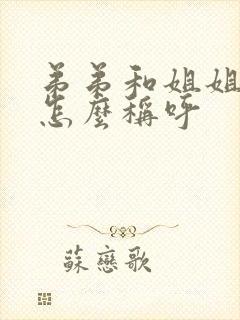 弟弟和姐姐
怎麼稱呼
蘇戀歌